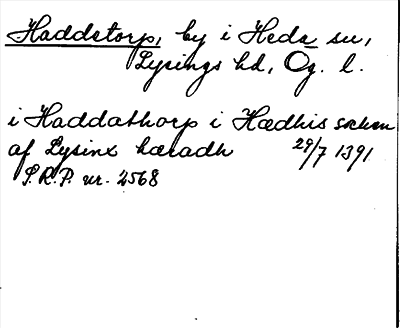 Haddatorp, by i Heda sn,
Lysings hd, Ög. l.
i Haddathorp i Hædhis sochen
af Lysinx hæradh 29/7 1391
S.R.P. nr. 2568